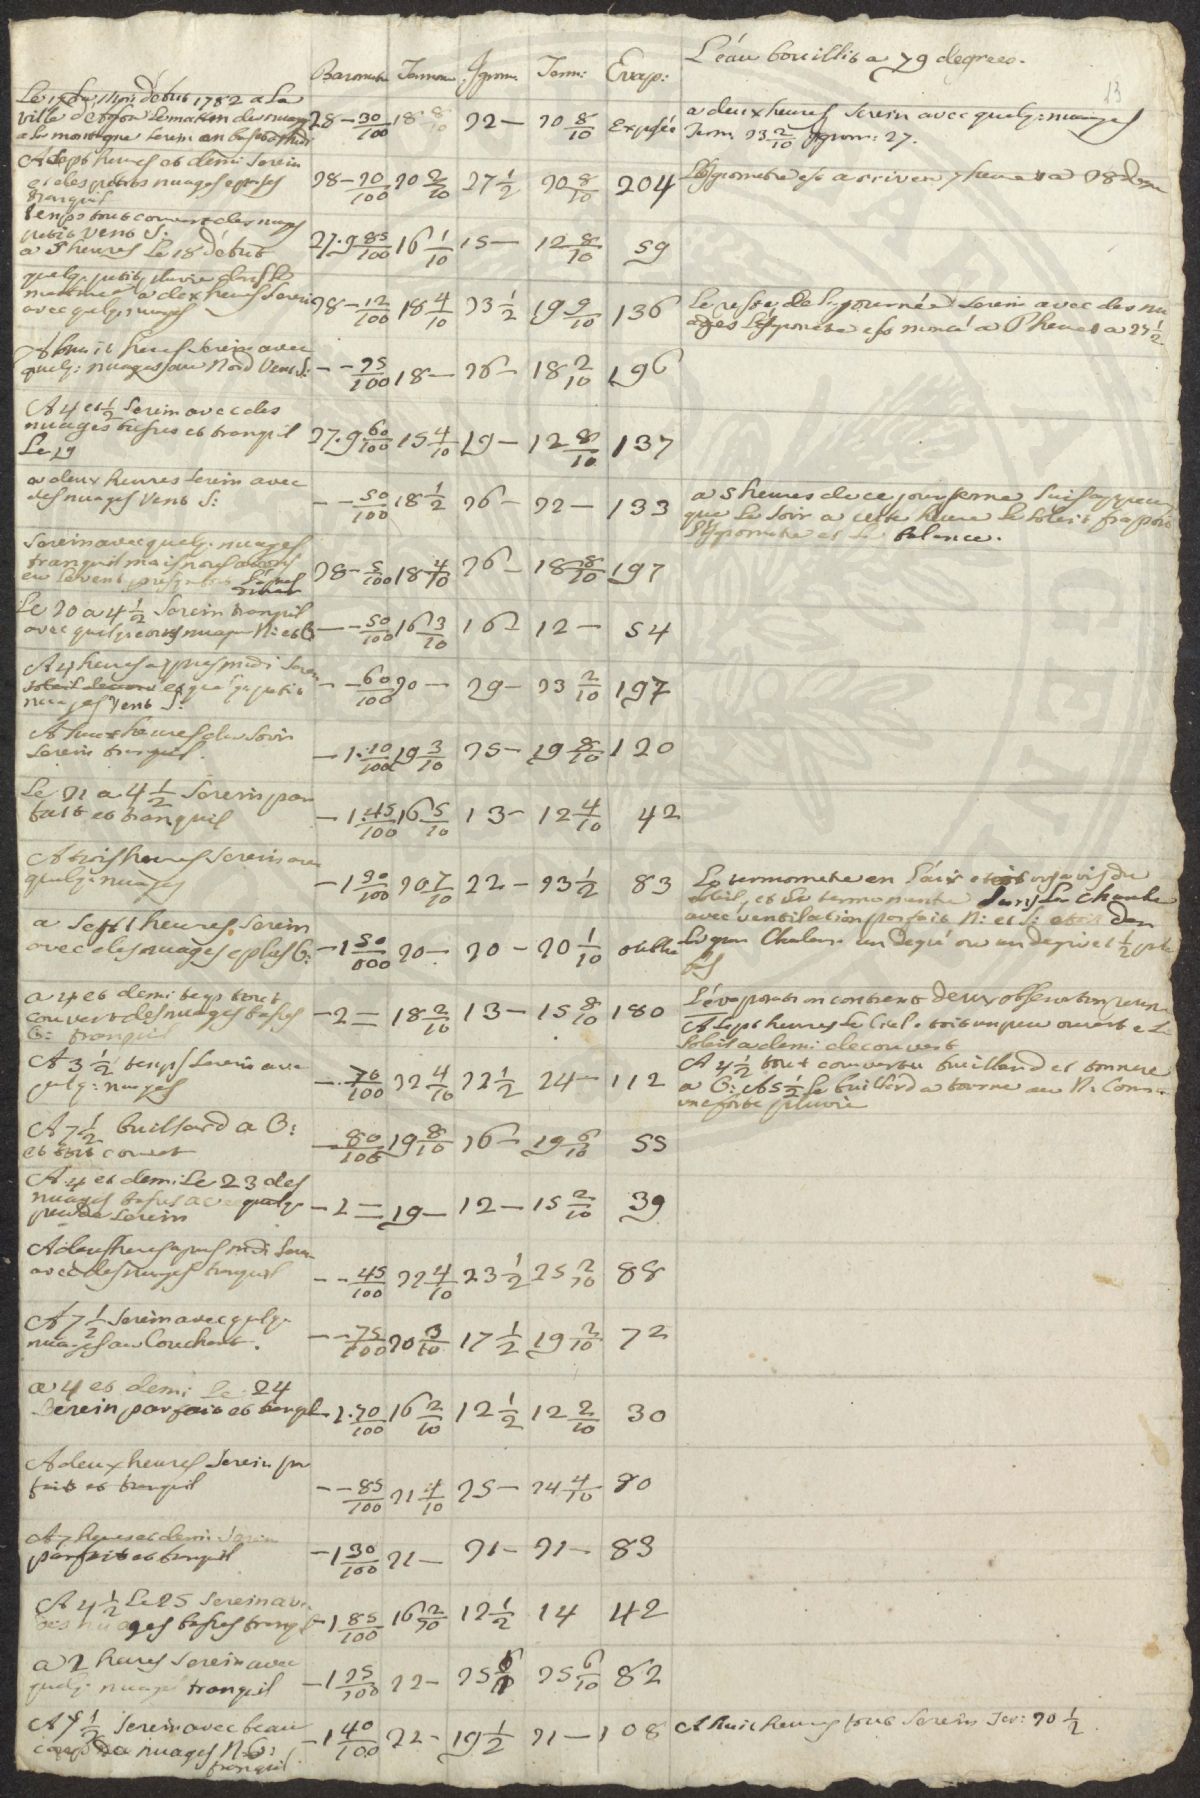 L'éau bouillit a 79 degrees.
13
Baromet Termom Igrom: Term: Evap:
Le 17 1782 a la
ville le matin des nuag
a la montagne serein en bas
28 — 30/100 18 8/10 22 — 20 8/10 Expósée
a deux heures serein avec quelq: nuages
Term 23 2/10 Igrom: 27.
A sept heures et demi serein
et des petits nuages
tranquil
28 — 20/100 20 2/10 27 1/2 20 8/10 204
L'Igrometre est arrivé a 7 heures a 28 degr
Temps tout couvert des nuages
petit vent S:
a 5 heures Le 18
27.9 85/100 16 1/10 15 — 12 8/10 59
quelq: petite pluvie dans la
matinée a deux heures serein
avec quelq: nuages
28 — 12/100 18 4/10 23 1/2 19 9/10 136
Le reste de la journée serein avec des nu
ages L'Igrometre est a 8 heures a 27 1/2
A huit heures serein avec
quelq: nuages au Nord Vent S:
— — 25/100 18 — 26 — 18 2/10 196
A 4 et 1/2 serein avec des
nuages basses et tranquil
Le 19
27.9 60/100 15 4/10 19 — 12 8/10 137
a deux heures serein avec
des nuages Vent S:
— — 50/100 18 1/2 26 — 22 — 133
a 5 heures de ce jour
que le soir a cette heure le soleil frapoit
l'Igrometre et la balance.
Serein avec quelq: nuages
tranquil mais nous avons
eu le vent presque tout
28 — 5/100 18 4/10 26 — 18 8/10 197
Le 20 a 4 1/2 serein tranquil
avec quelques nuages N: et O
— — 50/100 16 3/10 16 — 12 — 54
A 4 heures apres midi serein
et quelq: petits
nuages Vent S:
— — 60/100 20 — 29 — 23 2/10 197
A huit heures du soir
serein tranquil.
— 1.10/100 19 3/10 25 — 19 8/10 120
Le 21 a 4 1/2 serein par
fait et tranquil
— 1.45/100 16 5/10 13 — 12 4/10 42
A trois heures serein avec
quelq: nuages
— 1 30/100 20 7/10 22 — 23 1/2 83
Le termometre en l'air etoit vis a vis du
soleil, et le termometre dans la chambre
avec ventilation parfait N: et S: etoit dans
la gran Chaleur un degré ou un degré et 1/2 plus
bas
a sept heures serein
avec des nuages O:
— 1 50/000 20 — 20 — 20 1/10 oublié
a 4 et demi temps tout
couvert des nuages basses
O: tranquil
— 2 = 18 2/10 13 — 15 8/10 180
L'évaporation contient deux observations
A sept heures le Ciel etoit un peu ouvert e le
Soleil a demi decouvert
A 3 1/2 temps serein avec
quelq: nuages
— . 70/100 22 4/10 22 1/2 24 — 112
A 4 1/2 tout couvert brullard et tonnere
a O: A 5 1/2 le brullard a tourné au N: Com
une forte pluvie
A 7 1/2 brullard a O:
et tout couvert
— 80/100 19 8/10 16 — 19 6/10 55
A 4 et demi Le 23 des
nuages basses avec quelq
peu de serein
— 2 = 19 — 12 — 15 2/10 39
A deux heures apres midi serein
avec des nuages tranquil
— — 45/100 22 4/10 23 1/2 25 2/10 88
A 7 1/2 serein avec quelq:
nuages au Couchant.
— — 75/100 20 3/10 17 1/2 19 2/10 72
a 4 et demi le 24
Serein parfait et tranquil
— 1.70/100 16 2/10 12 1/2 12 2/10 30
A deux heures serein par
fait et tranquil
— — 85/100 21 4/10 25 — 24 4/10 90
A 7 heures et demi serein
parfait et tranquil
— 1 30/100 21 — 21 — 21 — 83
A 4 1/2 Le 25 serein avec
des nuages basses tranquil
— 1 85/100 16 2/10 12 1/2 14 42
a 2 heures serein avec
quelq: nuages tranquil
— 1 25/100 22 — 25 6/10 25 6/10 82
A 7 1/2 serein avec beau
coup de nuages N. O:
tranquil
— 1 40/100 22 — 19 1/2 21 — 108
A huit heures tout serein Ter: 20 1/2